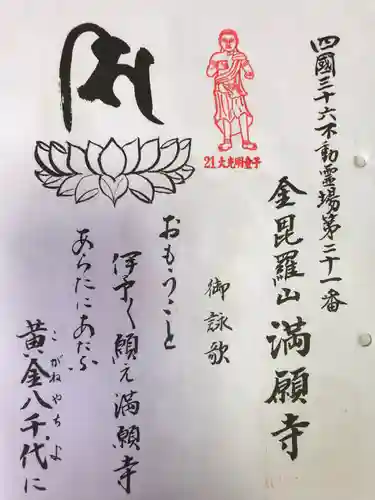 四國三十六不動霊場第二十一番
金毘羅山 満願寺
21大光明童子
御詠歌
おもうこと
伊予く願え満願寺
あらたにあたふ
黄金八千代に
こがねやちよ